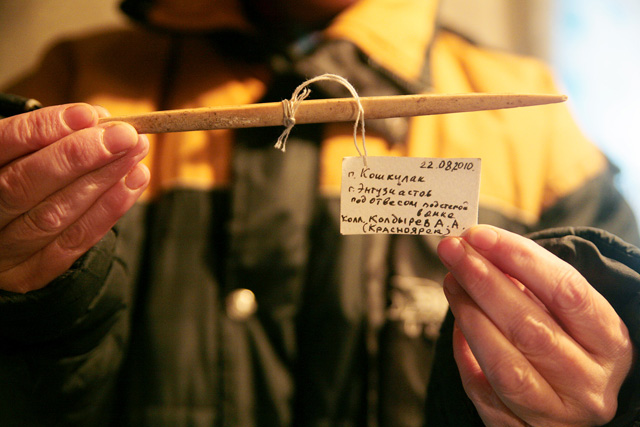 22.08.2010.
п. Кошкулак
г. Энтузиастов
под отвесом
в анке
колл. Колдырев А.А.
(Красноярск)